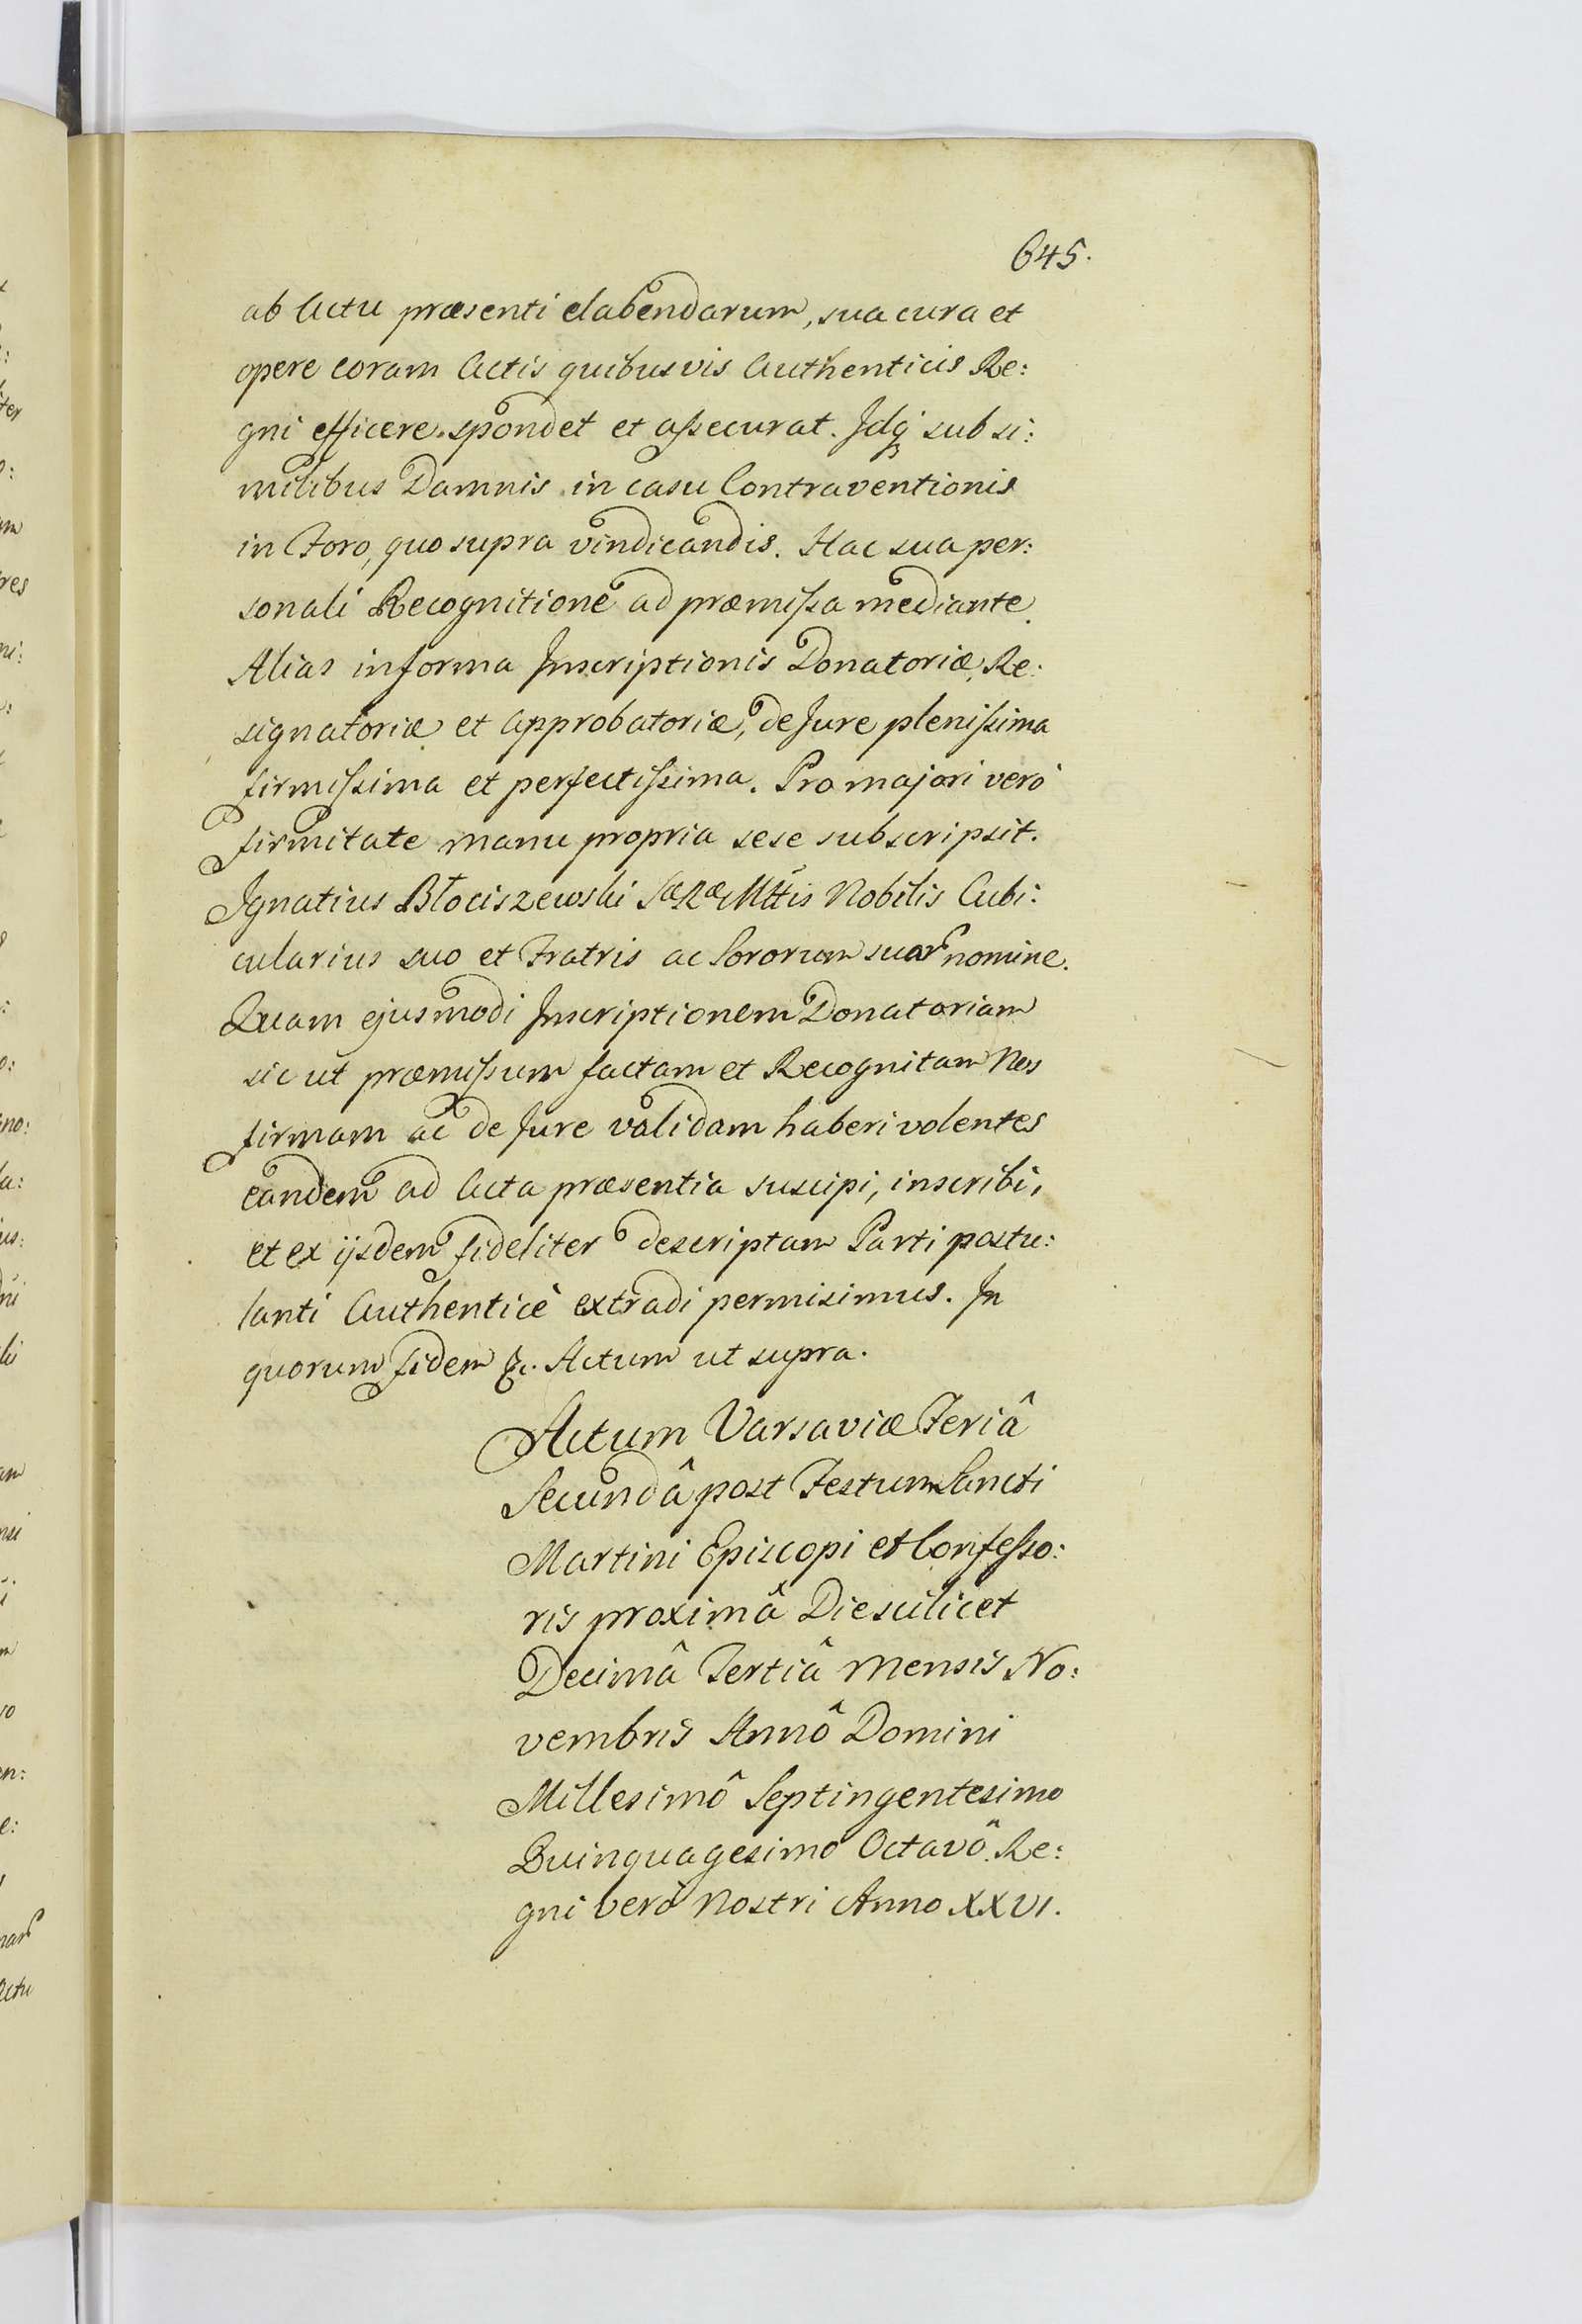 645.
ab Actu præsenti elabendarum, sua cura et
opere coram Actis quibusvis Authenticis Re:
gni efficere spondet et assecurat. Idq sub si:
milibus Damnis in casu Contraventionis
in Foro, quo supra vindicandis. Hac sua per:
sonali Recognitione ad præmissa mediante.
Alias in forma Inscriptionis Donatoriæ, Re:
signatoriæ et Approbatoriæ, de Jure plenissima
firmissima et perfectissima. Pro majori verò
firmitate manu propria sese subscripsit.
Ignatius Błociszewski SæRæMttis Nobilis Cubi:
cularius suo et Fratris ac Sororum suar nomine.
Quam ejusmodi Inscriptionem Donatoriam
sic ut præmissum factam et Recognitam Nos
firmam ac de Jure validam haberi volentes
eandem ad Acta præsentia suscipi, inscribi,
et ex ijsdem fideliter descriptam Parti postu:
lanti Authenticè extradi permisimus. In
quorum fidem &c. Actum ut supra.
Actum Varsaviæ Feriâ
Secundâ post Festum Sancti
Martini Episcopi et Confesso:
ris proximâ Die scilicet
Decimâ Tertiâ Mensis No:
vembris Annô Domini
Millesimô Septingentesimo
Quinquagesimo Octavô. Re:
gni verò Nostri Anno XXVI.